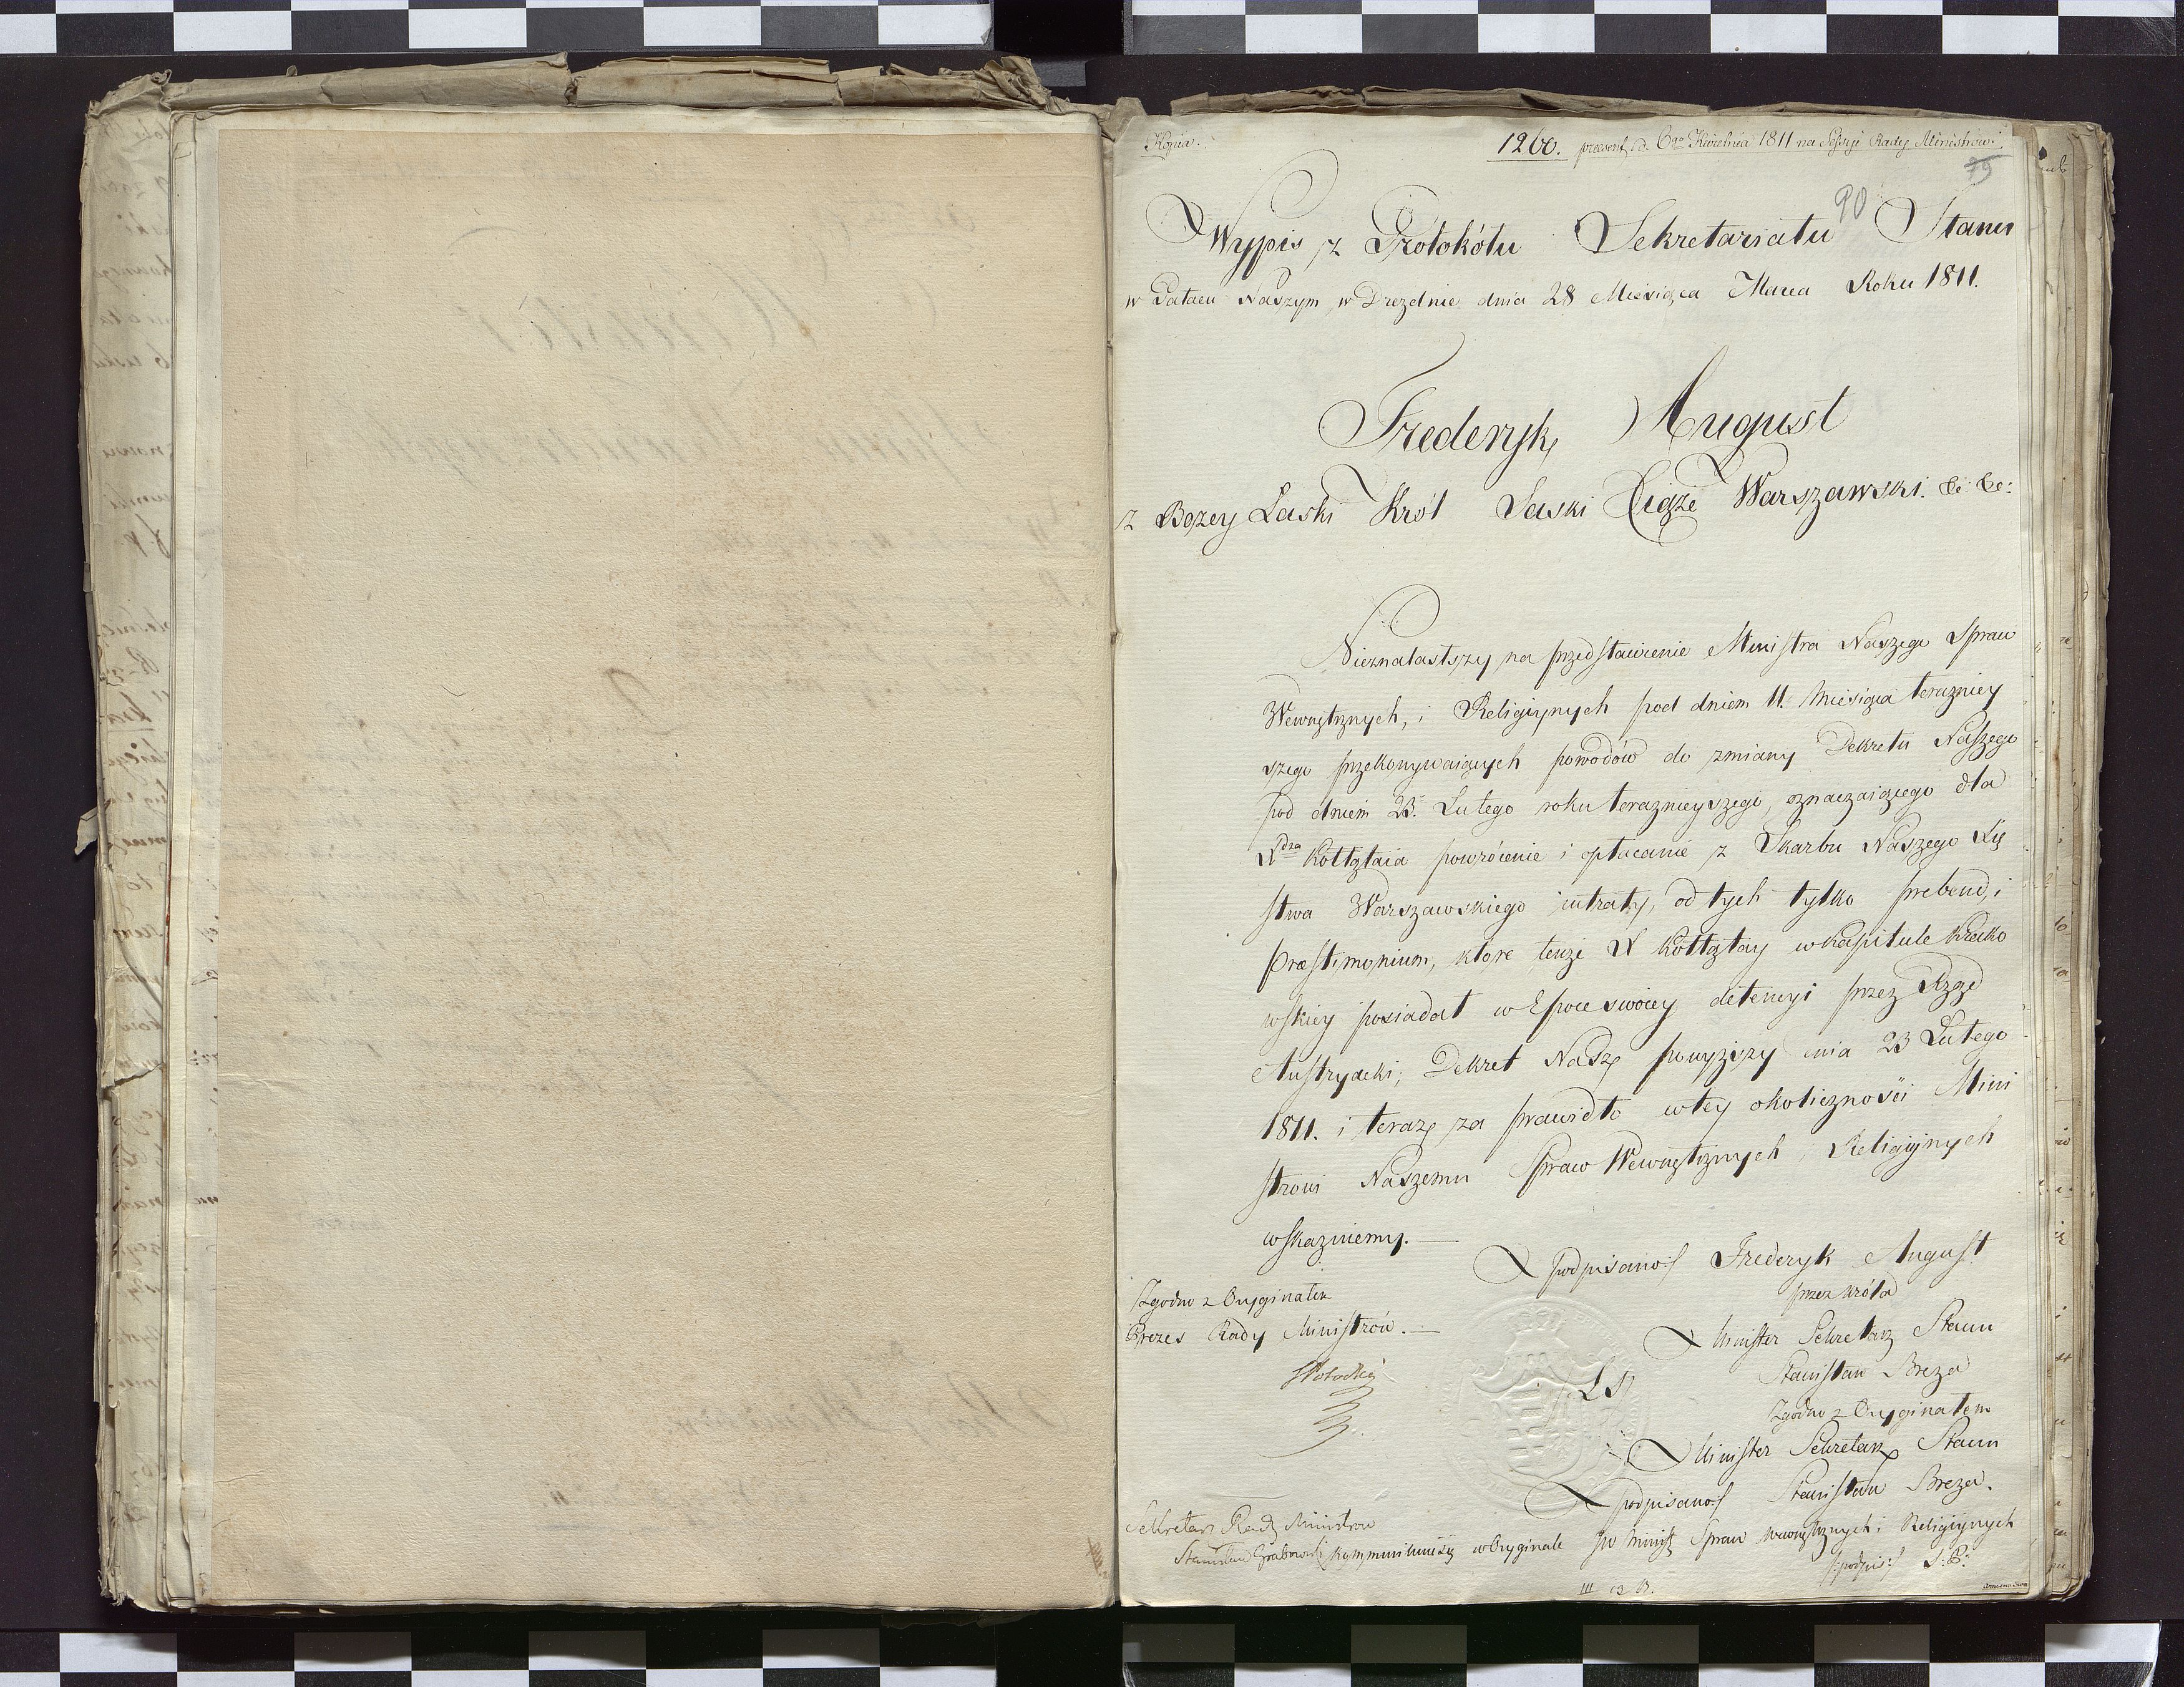 Kopia.
1260. praesent. d. 6go Kwietnia 1811 na Sessyi Rady Ministrów.
79
90
Wypis z Protokółu Sekretariatu Stanu
w Pałacu Naszym w Dreźdnie dnia 28 Miesiąca Marca Roku 1811.
Frederyk August
z Bożey Łaski Król Saski Xiąże Warszawski. &c: &c:
Nieznalastszy na przedstawienie Ministra Naszego Spraw
Wewnętrznych, i Religiynych pod dniem 11. Miesiąca teraźniey
szego przekonywaiących powodów do zmiany Dekretu Naszego
pod dniem 23. Lutego roku teraźnieyszego, oznaczaiącego dla
Xdza Kołłątaia powrócenie i opłacanie z Skarbu Naszego Xię
stwa Warszawskiego intraty, od tych tylko prebend, i
præstimonium, które tenże X Kołłątay w kapitule krako
wskiey posiadał w Epoce swoiey detencyi przez Rząd
Austryacki; Dekret Nasz powyższy dnia 23 Lutego
1811. i teraz za prawidło w tey okoliczności Mini
strowi Naszemu Spraw Wewnętrznych i Religiynych
wskazuiemy.
podpisano Frederyk August
przez Króla
Minister Sekretarz Stanu
Stanisław Breza
Zgodno z Oryginałem
Minister Sekretarz Stanu
podpisano Stanisław Breza.
Zgodno z Oryginałem
Prezes Rady Ministrów.
LS
Sekretarz Rady Ministrów
Stanisław Grabowski
kommunikuie się w Oryginale JW Minist Spraw Wewnętrznych i Religiynych
podpis: S: B: